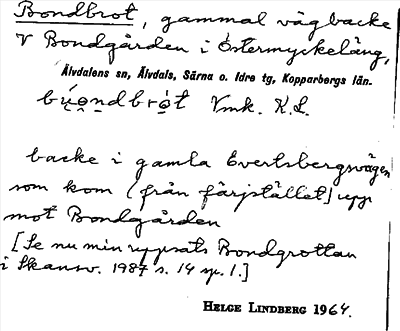 Bondbrot, gammal vägbacke
V Bondgården i Östermyckeläng,
Älvdalens sn, Älvdals, Särna o. Idre tg, Kopparbergs län.
Vmk. K.L.
backe i gamla Evertsbergsvägen
som kom (från färjstället) upp
mot Bondgården
[Se nu min uppsats Bondgrottan
i Skansv. 1984 s. 14 sp. 1.]
HELGE LINDBERG 1964.